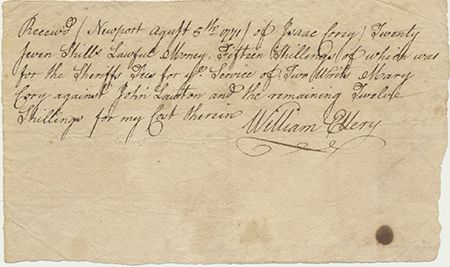 Receiv'd / Newport Agust 5th 1771 / of Isaac Corey / Twenty
Seven Shills Lawful Money, Fifteen Shillings of which was
for the Sheriffs Fees for ye. Service of Two Writs Mary
Cory against John Lawton and the remaining Twelve
Shillings for my Cost therein
William Ellery